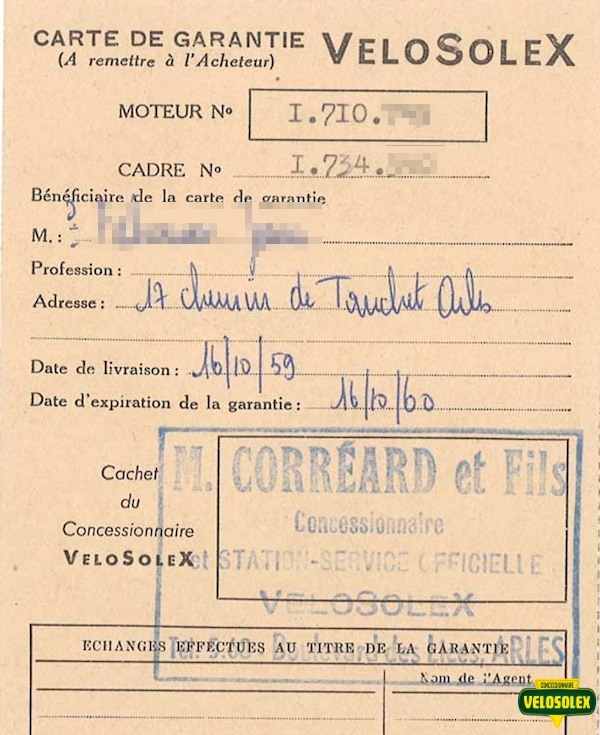 CARTE DE GARANTIE VELOSOLEX
(A remettre à l'Acheteur)
MOTEUR No I.710.
CADRE No I.734.
Bénéficiaire de la carte de garantie
M. :
Profession :
Adresse : 17 chemin de Tauchet Arles
Date de livraison : 16/10/59
Date d'expiration de la garantie : 16/10/60
M. CORRÉARD et Fils
Concessionnaire
et STATION-SERVICE OFFICIELLE
VELOSOLEX
Tél. 5.60 - Boulevard des Lices, ARLES
Cachet
du
Concessionnaire
VELOSOLEX
ECHANGES EFFECTUES AU TITRE DE LA GARANTIE
Nom de l'Agent
CONCESSIONNAIRE
VELOSOLEX